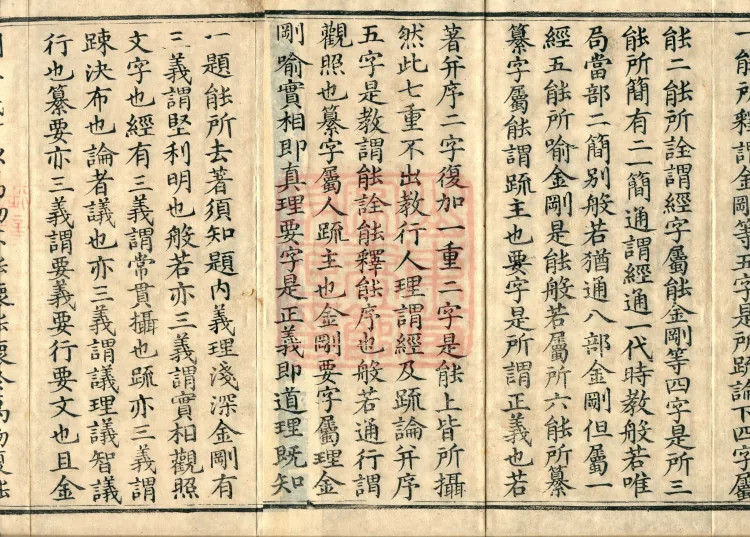 一能所釋謂金剛等五字是所疏論下四字屬
能二能所詮謂經字屬能金剛等四字是所三
能所簡有二一簡通謂經通一代時教般若唯
局當部二簡別般若猶通八部金剛但屬一
經五能所喻金剛是能般若屬所六能所纂
纂字屬能謂疏主也要字是所謂正義也若
著并序二字復加一重二字是能上皆所攝
然此七重不出教行人理謂經及疏論并序
五字是教謂能詮能釋能序也般若通行謂
觀照也纂字屬人疏主也金剛要字屬理金
剛喻實相即真理要字是正義即道理既知
一題能所去著須知題內義理淺深金剛有
三義謂堅利明也般若亦三義謂實相觀照
文字也經有三義謂常貫攝也疏亦三義謂
踈決布也論者議也亦三義謂議理議智議
行也纂要亦三義謂要義要行要文也且金